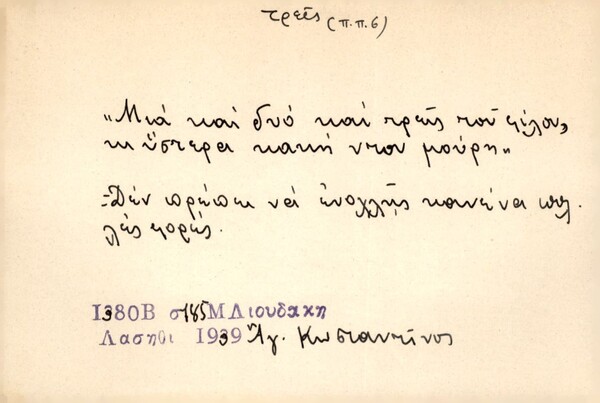 τρεῖς (π.π.6)
"Μιά καί δυό καί τρεῖς τοῦ φίλου,
κι ὕστερα κακή ντου μούρη"
-Δέν πρέπει νά ἐνοχλῇς κανένα πολ-
λές φορές.
1380Β σ 185 Μ Λιουδακη
Λασηθι 1939 Ἅγ. Κωσταντῖνος